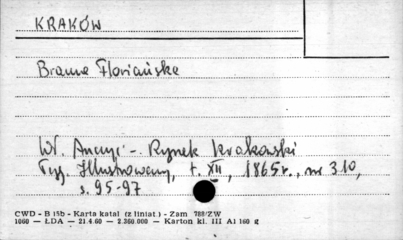 KRAKÓW
Brama Floriańska
Wł. Anczyc - Rynek krakowski
Tyg. Illustrowany, t. XII, 1865 r., nr 310,
s. 95-97
CWD - B 15b - Karta katal (z liniat.) - Zam 788/ZW
1060 — LDA — 21.4.60 — 2.360.000 — Karton kl. III A1 160 g